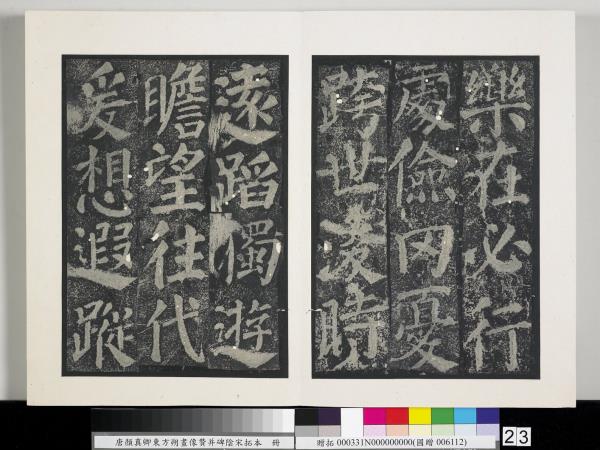 樂在必行
處儉罔憂
跨世淩時
遠蹈獨遊
瞻望往代
爰想遐蹤
唐顏真卿東方朔畫像贊并碑陰宋拓本 冊
贈拓 000331N000000000(國贈 006112)
23